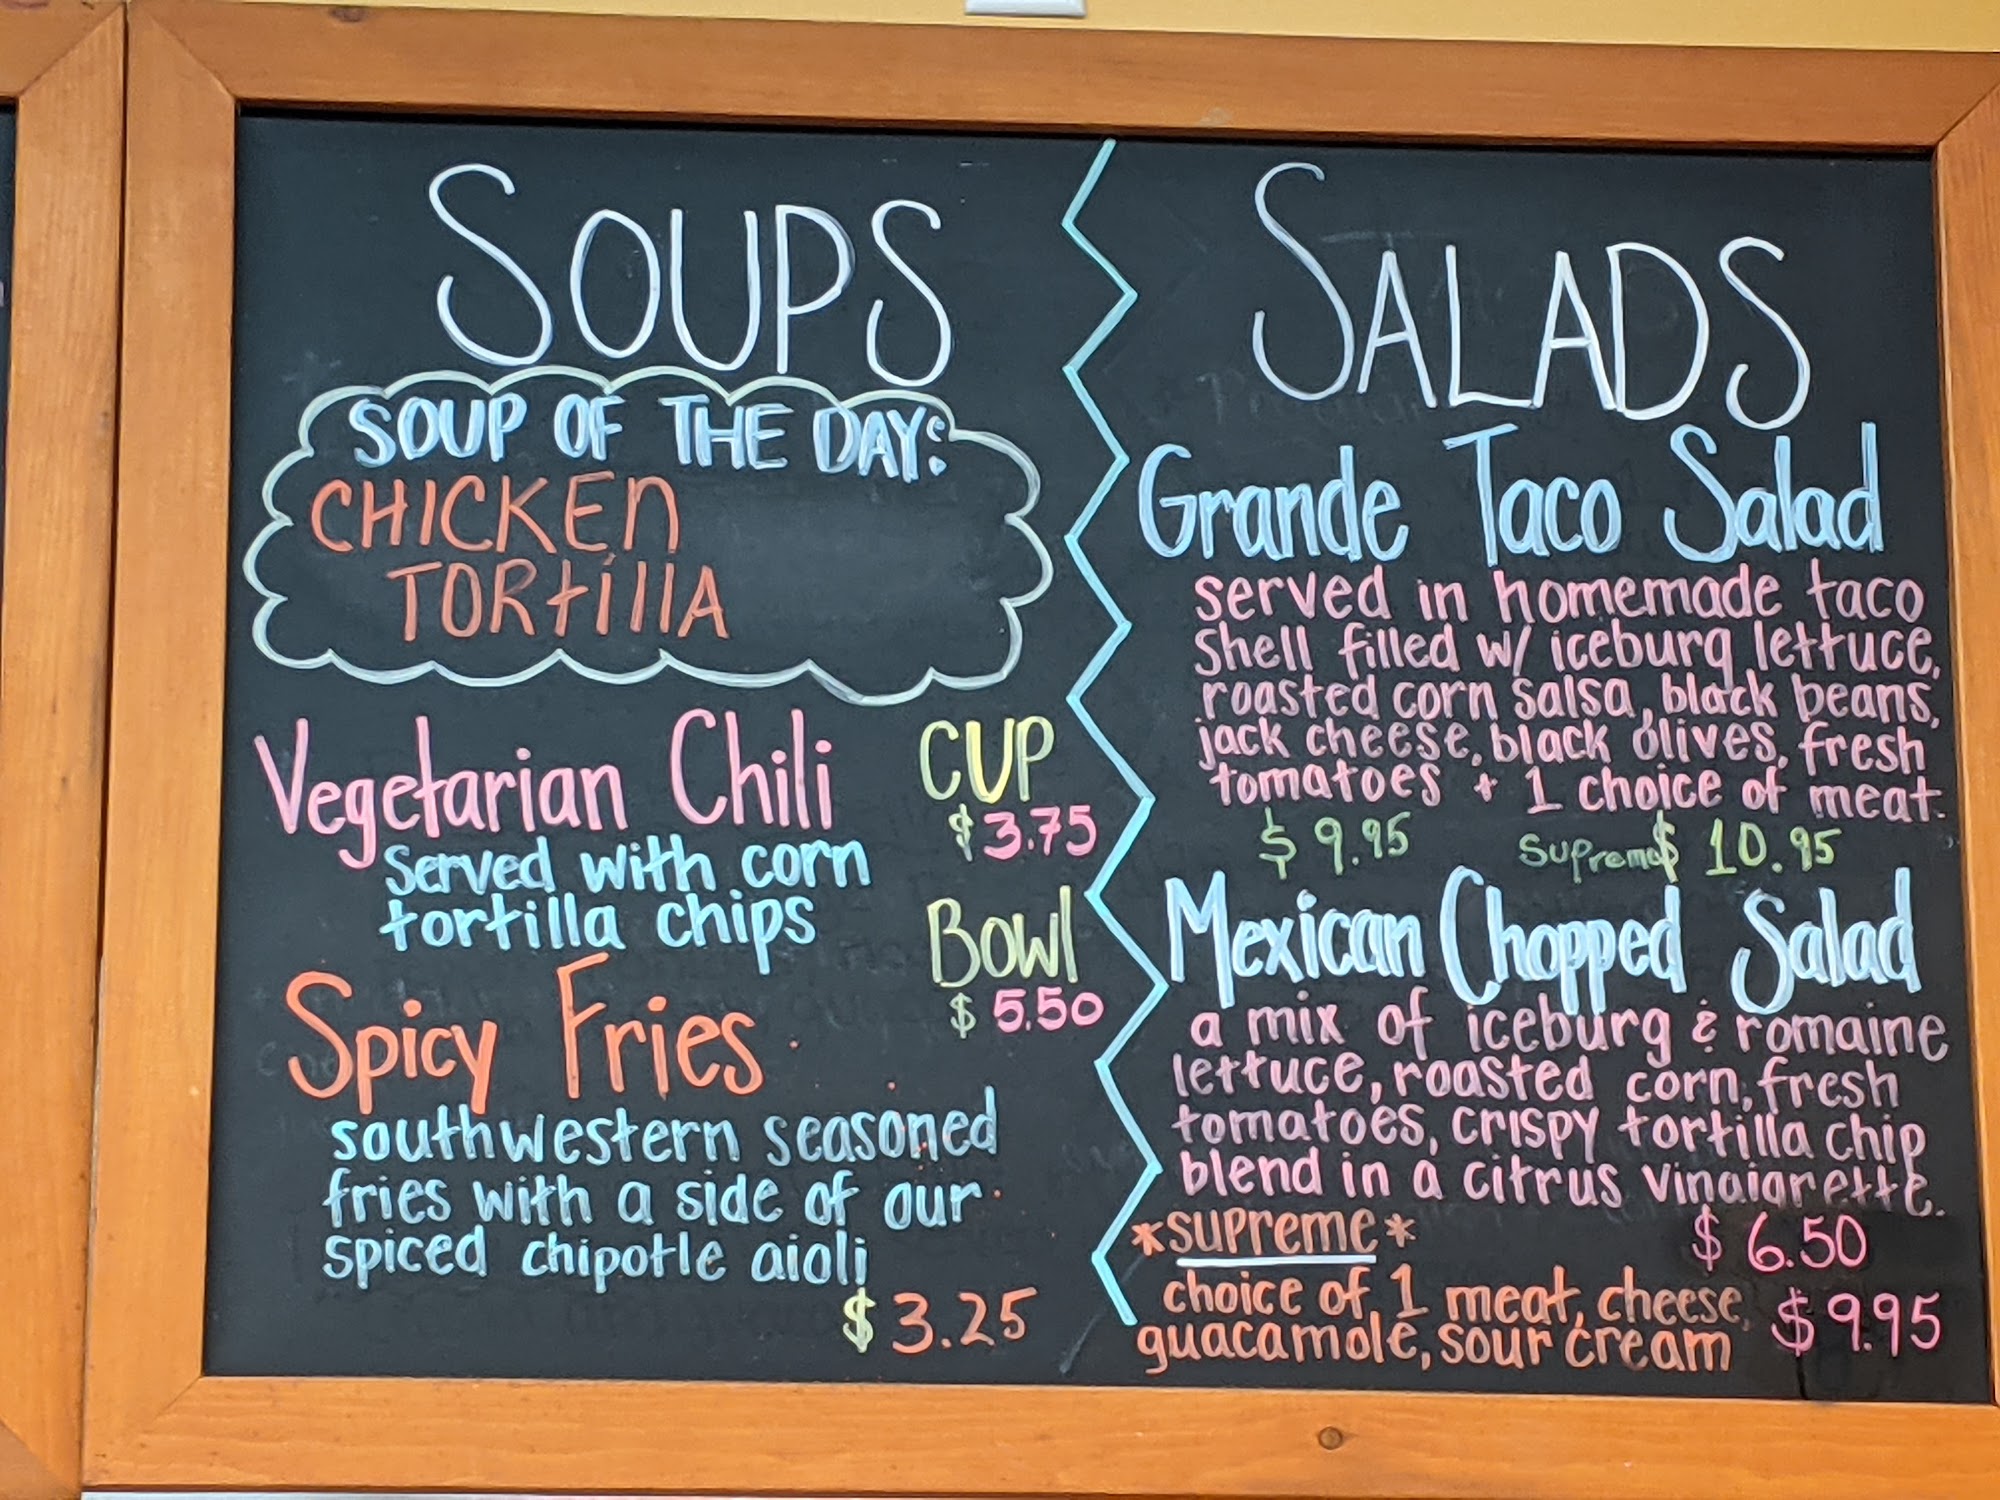 SOUPS
SOUP OF THE DAY:
CHICKEN
TORtillA
Vegetarian Chili
Served with corn
tortilla chips
CUP
$3.75
Bowl
$5.50
Spicy Fries
southwestern seasoned
fries with a side of our
spiced chipotle aioli
$3.25
SALADS
Grande Taco Salad
served in homemade taco
shell filled w/ iceburg lettuce,
roasted corn salsa, black beans,
jack cheese, black olives, fresh
tomatoes + 1 choice of meat.
$9.95 Supreme $10.95
Mexican Chopped Salad
a mix of iceburg & romaine
lettuce, roasted corn, fresh
tomatoes, crispy tortilla chip
blend in a citrus vinaigrette.
$6.50
*supreme*
choice of 1 meat, cheese,
guacamole, sour cream
$9.95